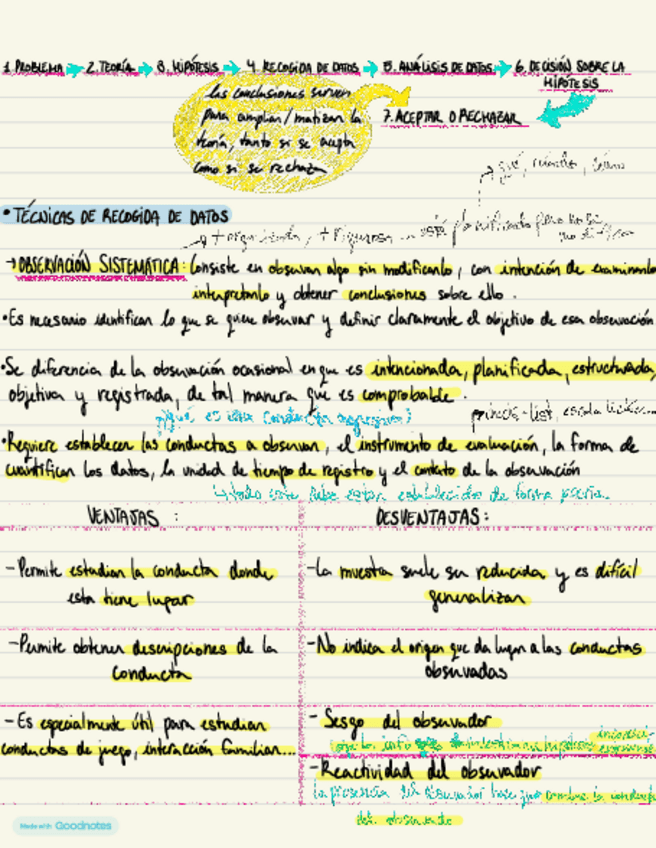 1. PROBLEMA → 2. TEORÍA → 3. HIPÓTESIS → 4. RECOGIDA DE DATOS → 5. ANÁLISIS DE DATOS → 6. DECISIÓN SOBRE LA
HIPÓTESIS
7. ACEPTAR O RECHAZAR
las conclusiones sirven
para ampliar/matizar la
teoría, tanto si se acepta
como si se rechaza
→ qué, cuándo, cómo
• TÉCNICAS DE RECOGIDA DE DATOS
→ + organizada, + rigurosa ... está planificada
→ OBSERVACIÓN SISTEMÁTICA: Consiste en observar algo sin modificarlo, con intención de examinarlo
interpretarlo y obtener conclusiones sobre ello.
• Es necesario identificar lo que se quiere observar y definir claramente el objetivo de esa observación
• Se diferencia de la observación ocasional en que es intencionada, planificada, estructurada,
objetiva y registrada, de tal manera que es comprobable.
¿qué es una conducta agresiva?
• Requiere establecer las conductas a observar, el instrumento de evaluación, la forma de
cuantificar los datos, la unidad de tiempo de registro y el contexto de la observación
↳ todo esto debe estar establecido de forma previa.
VENTAJAS :
DESVENTAJAS :
- Permite estudiar la conducta donde
esta tiene lugar
- La muestra suele ser reducida y es difícil
generalizar
- Permite obtener descripciones de la
conducta
- No indica el origen que da lugar a las conductas
observadas
- Es especialmente útil para estudiar
conductas de juego, interacción familiar...
- Sesgo del observador
- Reactividad del observador
la presencia del observador hace que cambie la conducta
del observado
Made with Goodnotes